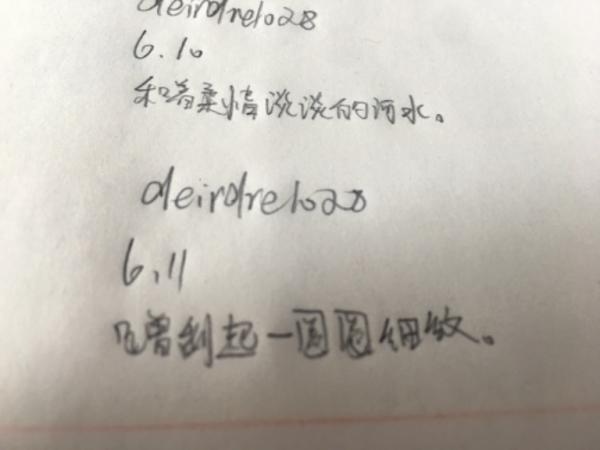 deirdre1028
6.10
和着柔情淡淡的河水。
deirdre1028
6.11
曾刮起一圈圈细纹。